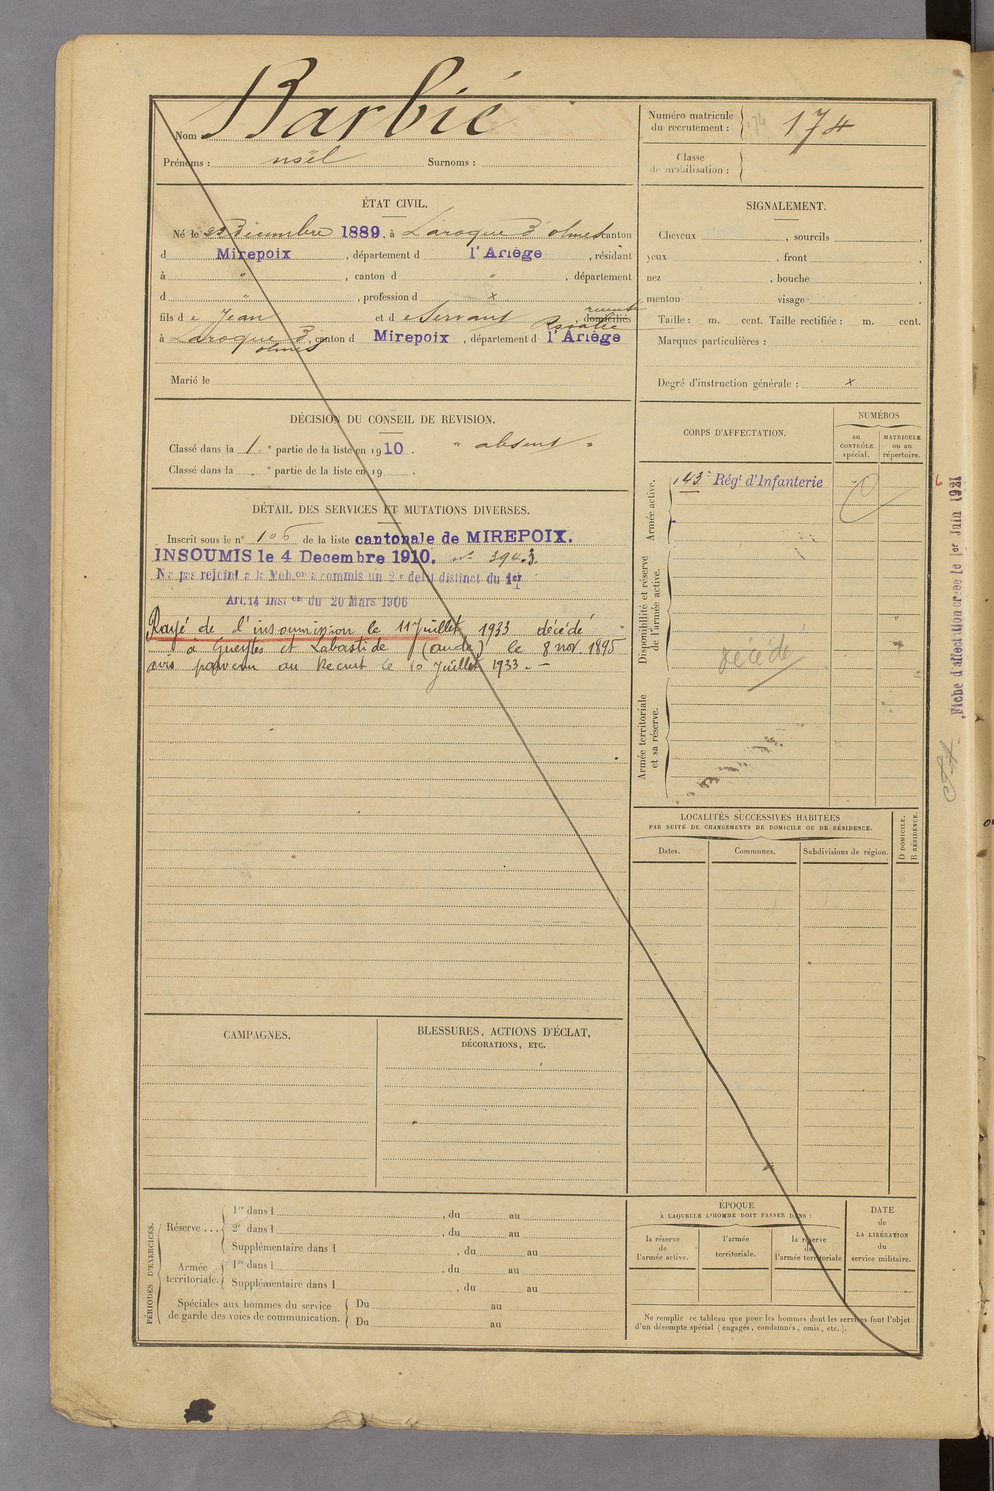 Nom : Barbié
Prénoms : noël Surnoms :
Numéro matricule du recrutement : 174
Classe de mobilisation :
ÉTAT CIVIL.
Né le 25 Décembre 1889, à Laroque d'olmes canton
d Mirepoix, département d l'Ariège, résidant
à " , canton d " , département
d " , profession d x
fils de Jean et de Servant Rosalie, domiciliés
à Laroque d'olmes, canton d Mirepoix, département d l'Ariège
Marié le
SIGNALEMENT.
Cheveux , sourcils ,
yeux , front ,
nez , bouche ,
menton visage
Taille : m. cent. Taille rectifiée : m. cent.
Marques particulières :
Degré d'instruction générale : x
DÉCISION DU CONSEIL DE REVISION.
Classé dans la 1.e partie de la liste en 1910. " absent "
Classé dans la . e partie de la liste en 19 .
DÉTAIL DES SERVICES ET MUTATIONS DIVERSES.
Inscrit sous le n° 106 de la liste cantonale de MIREPOIX.
INSOUMIS le 4 Decembre 1910. n° 394.3.
N'a pas rejoint a la Mob.on a commis un 2e delit distinct du 1er
Art.14 Inst.on du 20 Mars 1906
Rayé de l'insoumission le 11 Juillet 1933 décédé
à Gueytes et Labastide (aude) le 8 nov. 1895
avis parvenu au Recrut le 10 Juillet 1933. —
CORPS D'AFFECTATION.
NUMÉROS
au CONTRÔLE spécial.
MATRICULE ou au répertoire.
Armée active.
143e Régt d'Infanterie
Disponibilité et réserve de l'armée active.
décédé
Armée territoriale et sa réserve.
Fiche d'affectation créée le 1er Juin 1921
LOCALITÉS SUCCESSIVES HABITÉES
PAR SUITE DE CHANGEMENTS DE DOMICILE OU DE RÉSIDENCE.
Dates. Communes. Subdivisions de région.
D DOMICILE.
R RÉSIDENCE.
CAMPAGNES.
BLESSURES, ACTIONS D'ÉCLAT,
DÉCORATIONS, ETC.
PÉRIODES D'EXERCICES.
Réserve ...
1re dans l , du au
2e dans l , du au
Supplémentaire dans l , du au
Armée territoriale.
1re dans l , du au
Supplémentaire dans l , du au
Spéciales aux hommes du service
de garde des voies de communication.
Du au
Du au
ÉPOQUE
À LAQUELLE L'HOMME DOIT PASSER DANS :
la réserve de l'armée active.
l'armée territoriale.
la réserve de l'armée territoriale
DATE de LA LIBÉRATION du service militaire.
Ne remplir ce tableau que pour les hommes dont les services font l'objet
d'un décompte spécial (engagés, condamnés, omis, etc.).